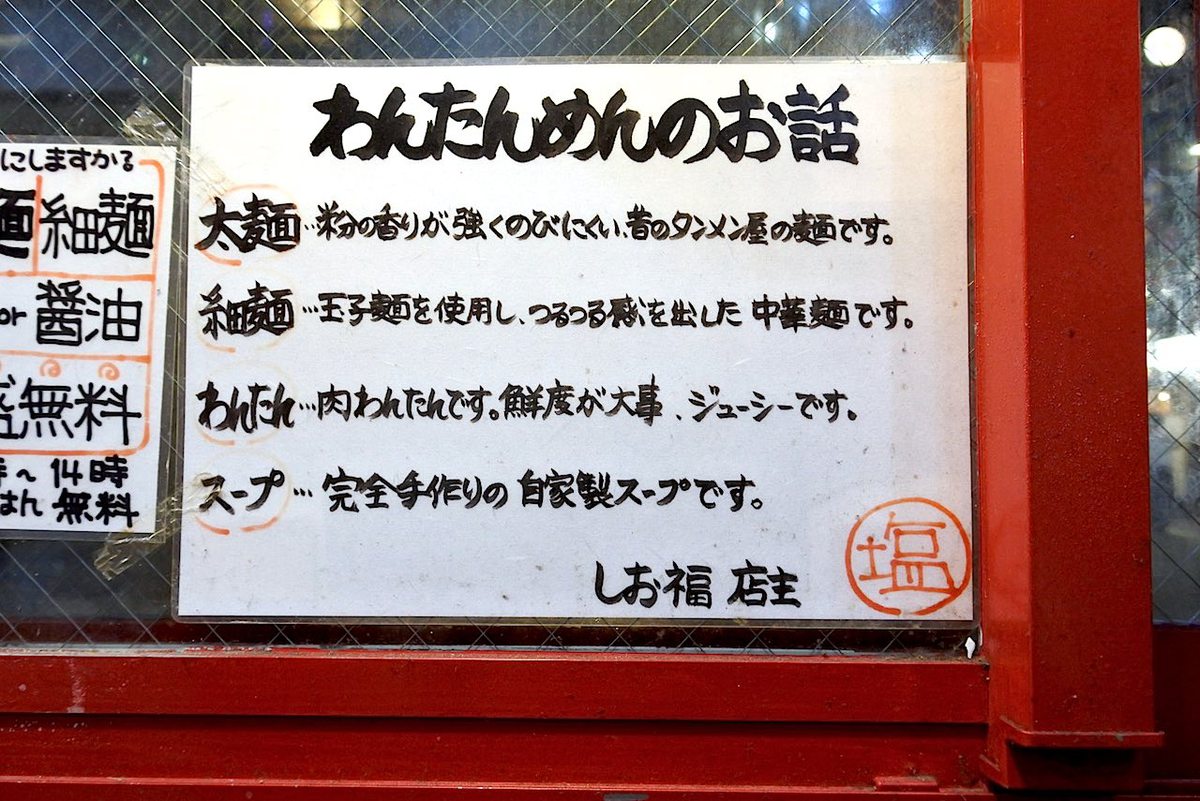 わんたんめんのお話
太麺…粉の香りが強くのびにくい、昔のタンメン屋の麺です。
細麺…玉子麺を使用し、つるつる感を出した 中華麺です。
わんたん…肉わんたんです。鮮度が大事、ジューシーです。
スープ…完全手作りの自家製スープです。
しお福 店主
塩
にしますかる
麺 細麺
or 醤油
無料
～14時
はん 無料